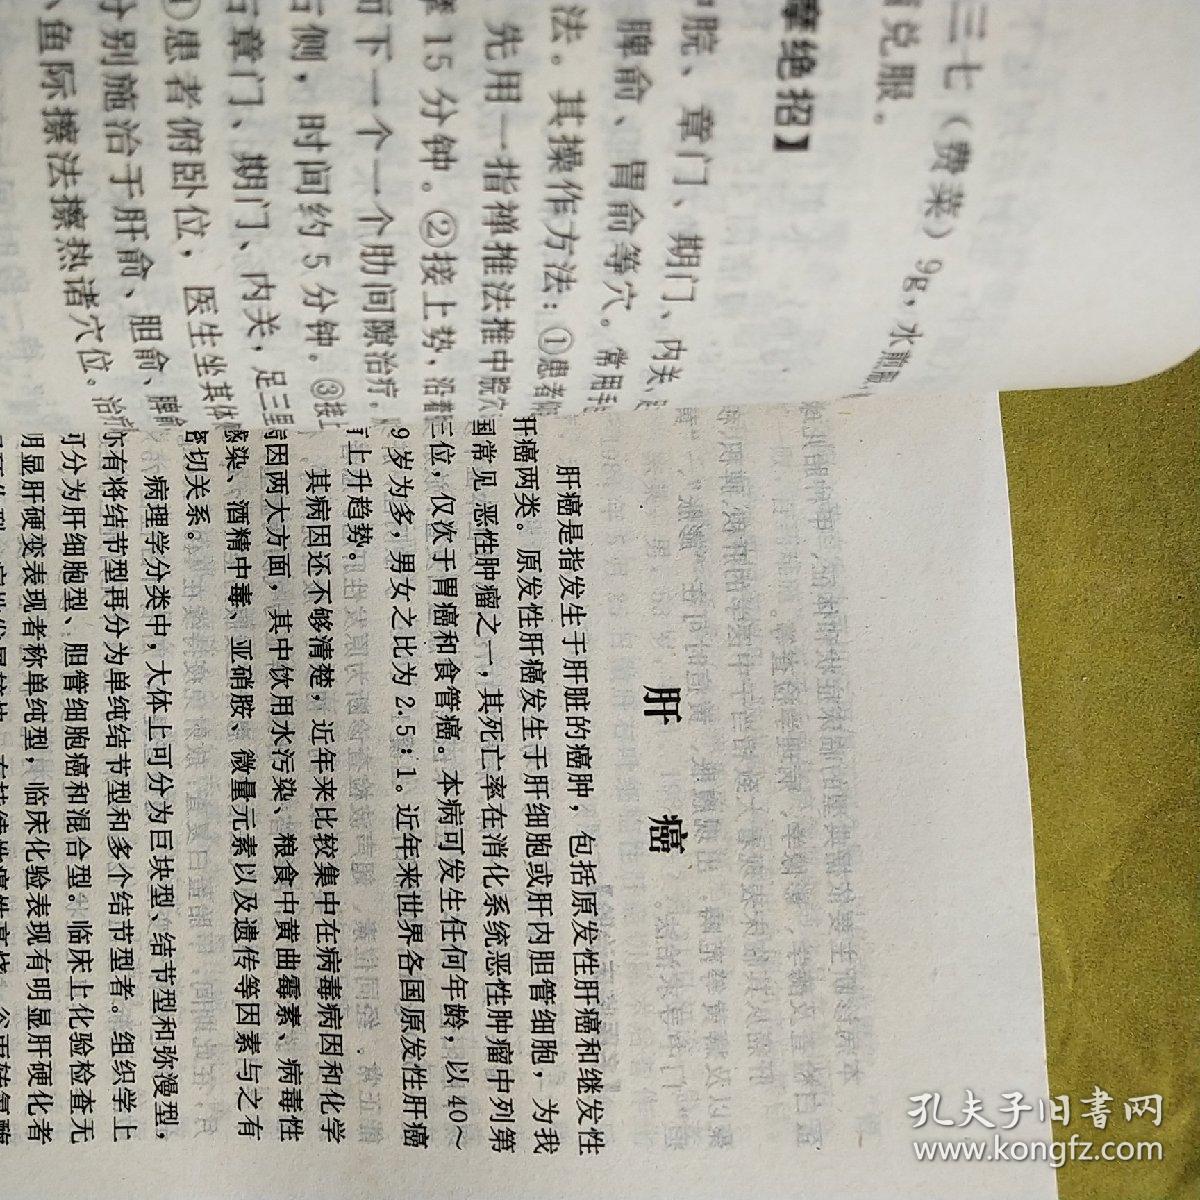 三七（费菜）9g，水
兑服。
摩绝招】
脘、章门、期门、内关、
脾俞、胃俞等穴。常用手
法。其操作方法：①患者
先用一指禅推法推中脘穴
15分钟。②接上势，沿着
而下一个一个肋间隙治疗，
右侧，时间约5分钟。③接上
右章门、期门、内关，足三里
①患者俯卧位，医生坐其体
分别施治于肝俞、胆俞、脾俞
鱼际擦法擦热诸穴位。治疗
肝癌
肝癌是指发生于肝脏的癌肿，包括原发性肝癌和继发性
肝癌两类。原发性肝癌发生于肝细胞或肝内胆管细胞，为我
国常见恶性肿瘤之一，其死亡率在消化系统恶性肿瘤中列第
三位，仅次于胃癌和食管癌。本病可发生任何年龄，以40～
9岁为多，男女之比为2.5:1。近年来世界各国原发性肝癌
有上升趋势。
其病因还不够清楚，近年来比较集中在病毒病因和化学
病因两大方面，其中饮用水污染、粮食中黄曲霉素、病毒性
感染、酒精中毒、亚硝胺、微量元素以及遗传等因素与之有
密切关系。
病理学分类中，大体上可分为巨块型、结节型和弥漫型，
亦有将结节型再分为单纯结节型和多个结节型者。组织学上
可分为肝细胞型、胆管细胞癌和混合型。临床上化验检查无
明显肝硬变表现者称单纯型，临床化验表现有明显肝硬化者
孔夫子旧书网
www.kongfz.com